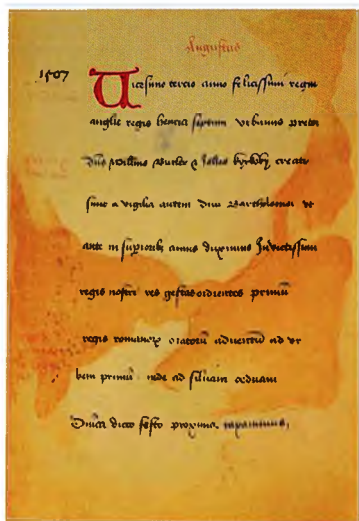 Augustus
1507
Uicesimo tercio anno felicissimi regni
anglie regis henrici septimi vrbanus pretor
dns Willms Butler & Johes kyrkby creati
sunt a vigilia autem Diui Bartholomei vt
ante in superioribus annis diximus Inuictissimi
regis nostri res gestas ordientes primu
regis romanorum oratoru aduentu ad vr
bem primu inde ad siluam
Diuo dicto festo proximo